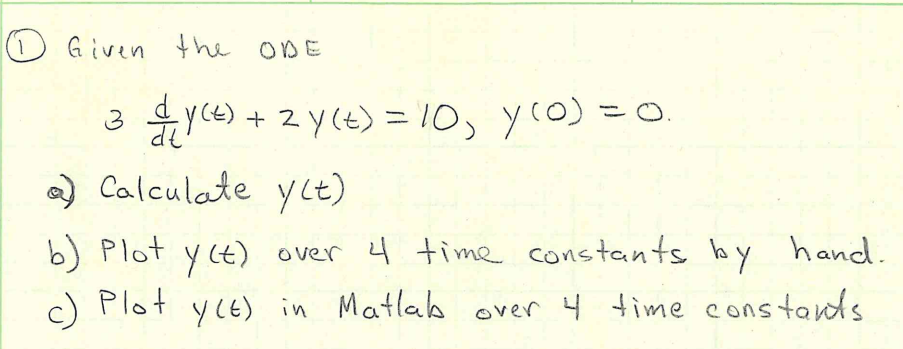 ① Given the ODE
3 d/dt y(t) + 2 y(t) = 10, y(0) = 0.
a) Calculate y(t)
b) Plot y(t) over 4 time constants by hand.
c) Plot y(t) in Matlab over 4 time constants